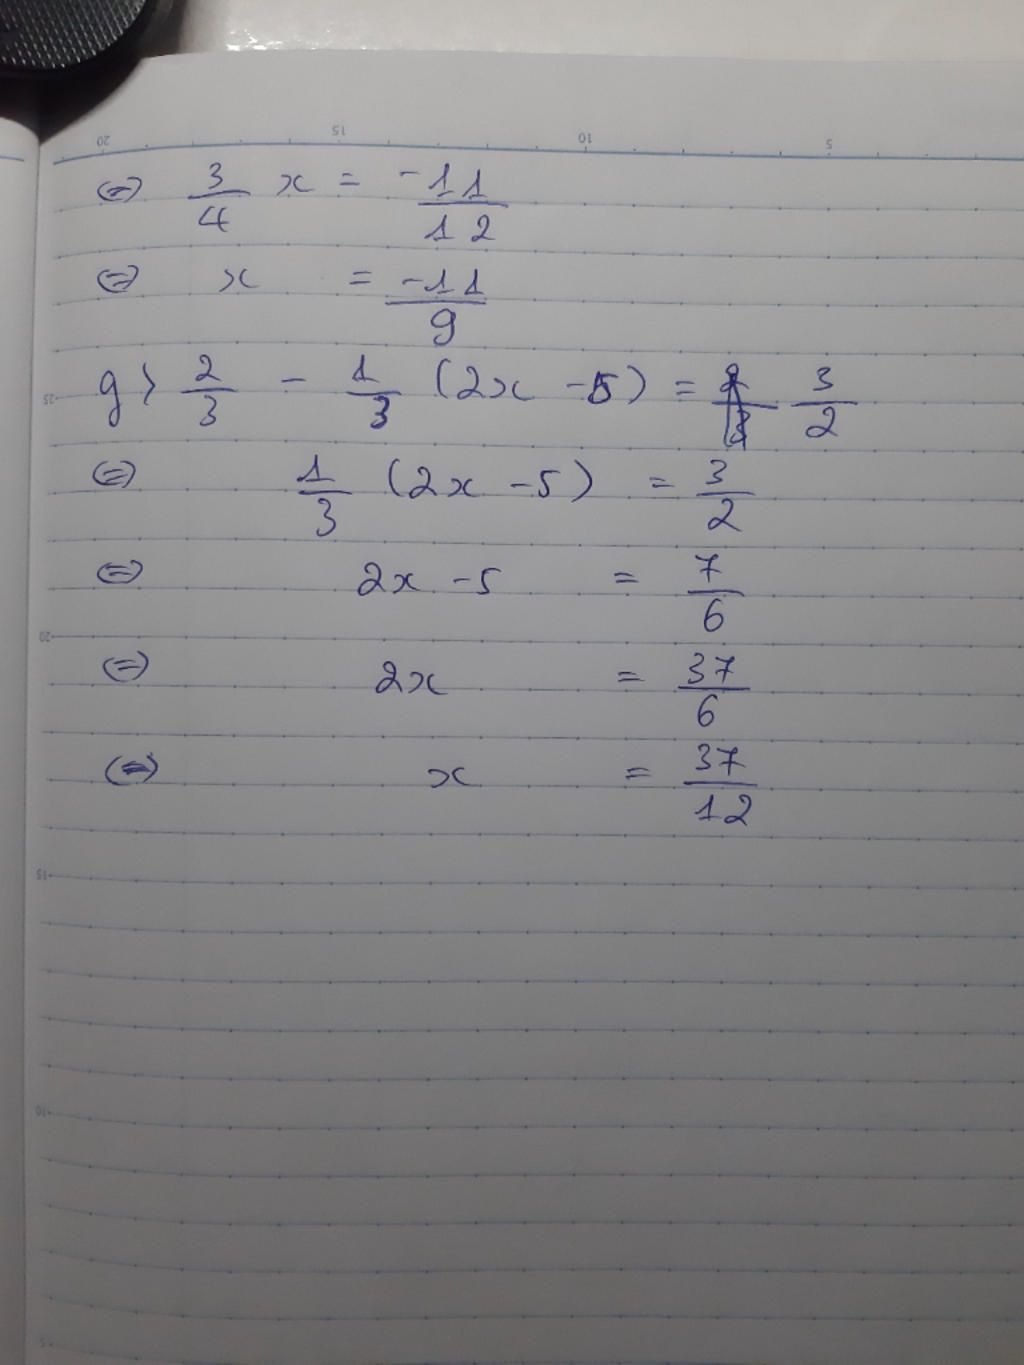 20 15 10 5
⇔ 3/4 x = -11/12
⇔ x = -11/9
g) 2/3 - 1/3 (2x - 5) = 3/2
25
⇔ 1/3 (2x - 5) = 3/2
⇔ 2x - 5 = 7/6
20
⇔ 2x = 37/6
⇔ x = 37/12
15
10
5